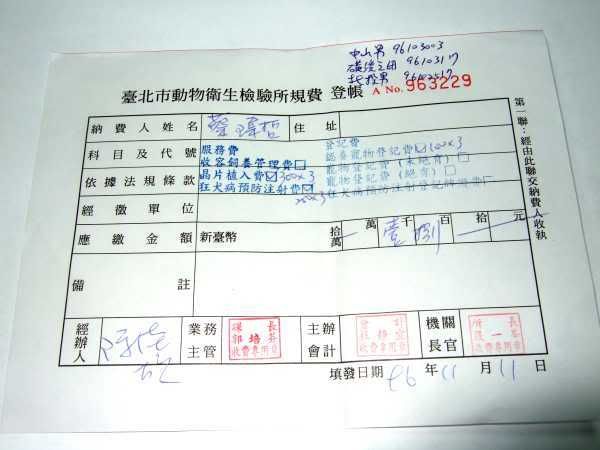 中山男 96103003
96103117
臺北市動物衛生檢驗所規費 登帳 A No. 963229
納費人姓名 蔡瑋哲 住址
科目及代號 服務費 登記費
收容飼養管理費□ 認養寵物登記費☑ 100×3
依據法規條款 晶片植入費☑ 300×3 寵物登記費(未絕育)□
狂犬病預防注射費☑ 寵物登記費(絕育)□
經徵單位 200×3 狂犬病預防注射登記牌證費□
應繳金額 新臺幣 拾萬 萬 壹千 捌百 拾 元
備註
經辦人 業務主管 課長 郭培芬 收費專用章 主辦會計 機關長官 收費專用章
填發日期 96年11月11日
第一聯:經由此聯交納費人收執